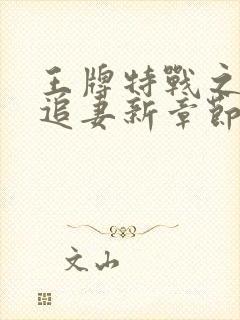 王牌特戰之
追妻新章節
文山